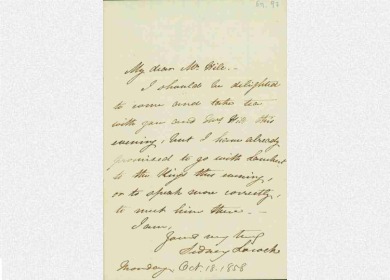 My dear Mr Hill..
I should be delighted
to come and take tea
with you and Mrs Hill this
evening, but I have already
promised to go with Lambert
to the Kings this evening,
or to speak more correctly,
to meet him there. -
I am,
Yours very truly
Sidney Locock
Monday Oct. 18. 1858